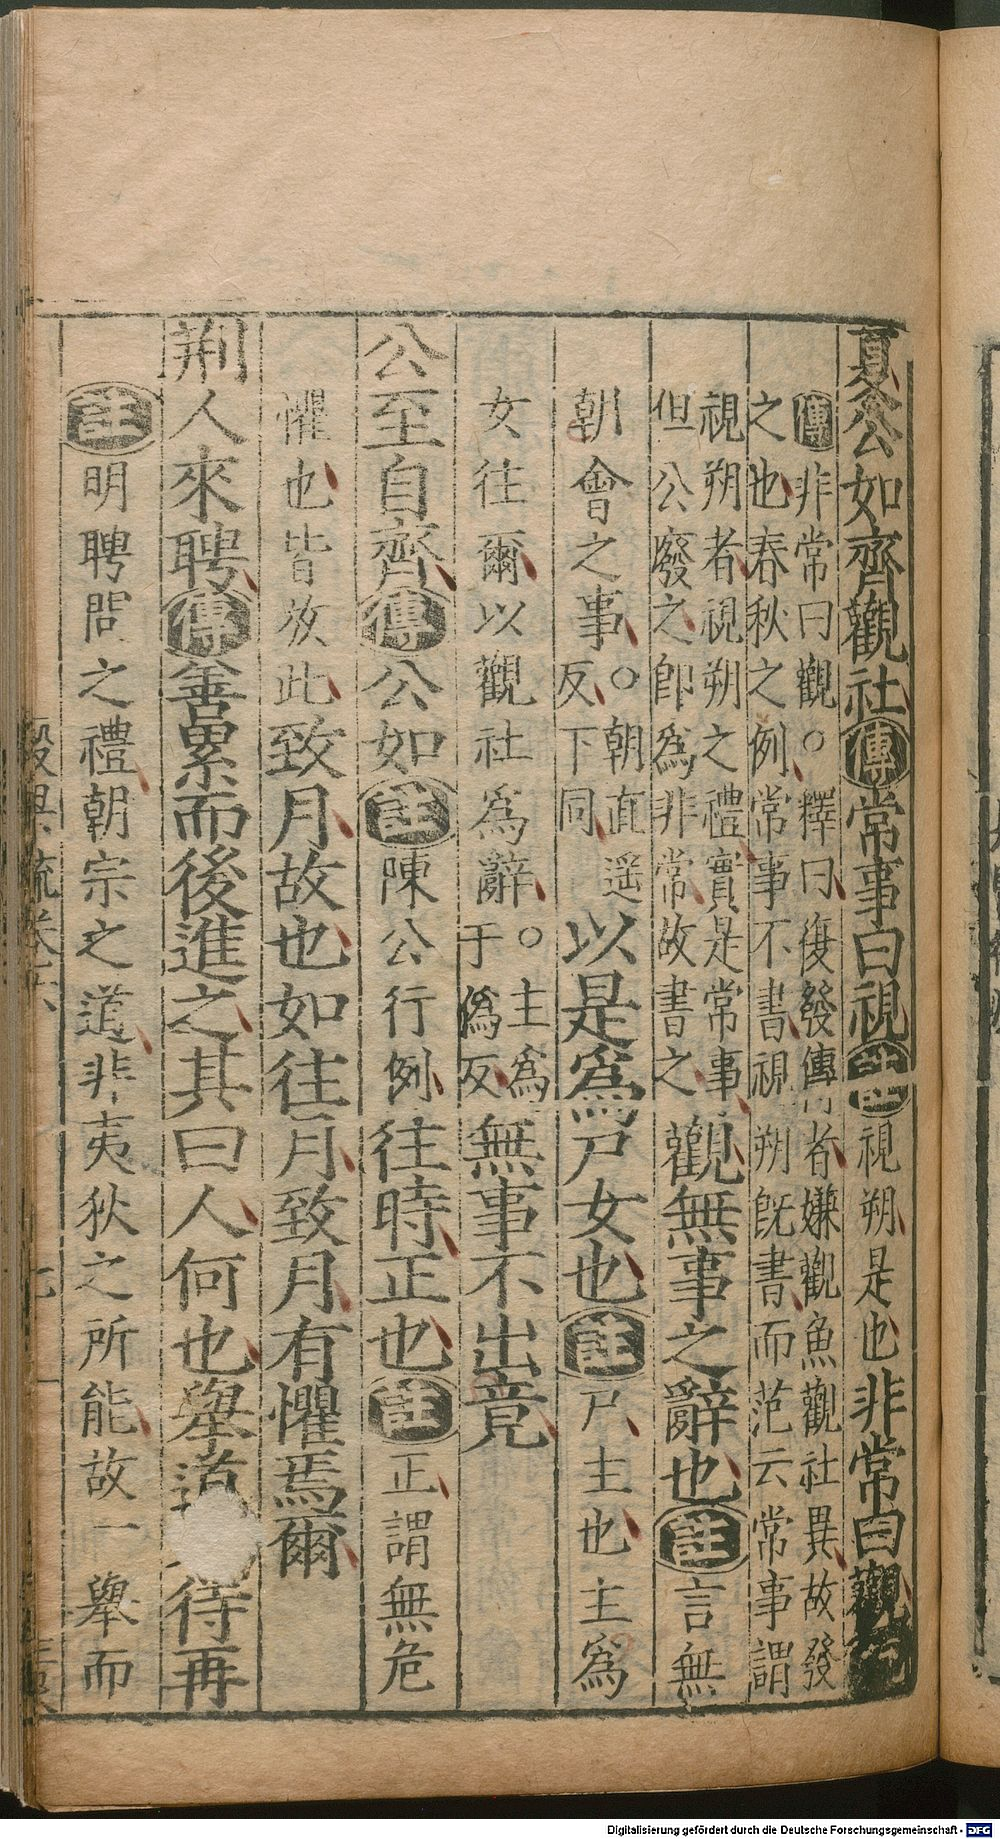 夏公如齊觀社傳常事曰視註視朔是也非常曰觀疏
傳非常曰觀○釋曰復發傳者嫌觀魚觀社異故發
之也春秋之例常事不書視朔旣書而范云常事謂
視朔者視朔之禮實是常事
但公廢之卽爲非常故書之觀無事之辭也註言無
朝會之事○朝直遥反下同以是爲尸女也註尸主也主爲
女往爾以觀社爲辭○主爲于僞反無事不出竟
公至自齊傳公如註陳公行例往時正也註正謂無危
懼也皆放此致月故也如往月致月有懼焉爾
荆人來聘傳善累而後進之其曰人何也舉道待再
註明聘問之禮朝宗之道非夷狄之所能故一舉而
榖梁疏卷六
Digitalisierung gefördert durch die Deutsche Forschungsgemeinschaft - DFG